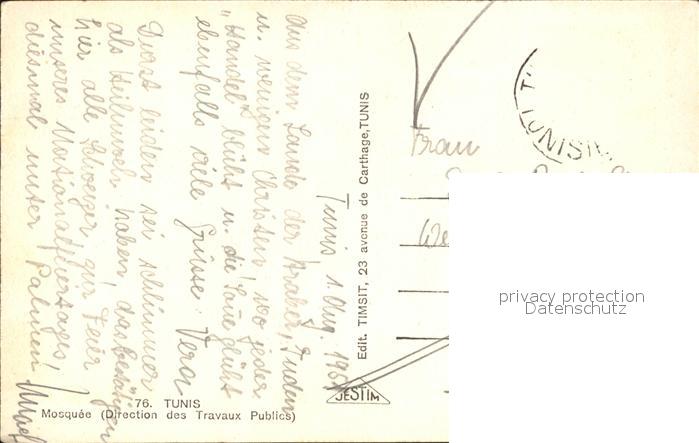 Tunis 1. Aug. 196
Aus dem Lande der Araber, Juden
u. wenigen Christen, wo jeder
"Handel" blüht u. die Sonne glüht
ebenfalls viele Grüsse Vera
Durst leiden sei schlimmer
als Heimweh haben, das bestätigen
hier alle Schweizer zur Feier
unseres Nationalfeiertages,
diesmal unter Palmen!
76. TUNIS
Mosquée (Direction des Travaux Publics)
Edit. TIMSIT, 23 avenue de Carthage, TUNIS
JESTIM
Frau
TUNISIE
privacy protection
Datenschutz